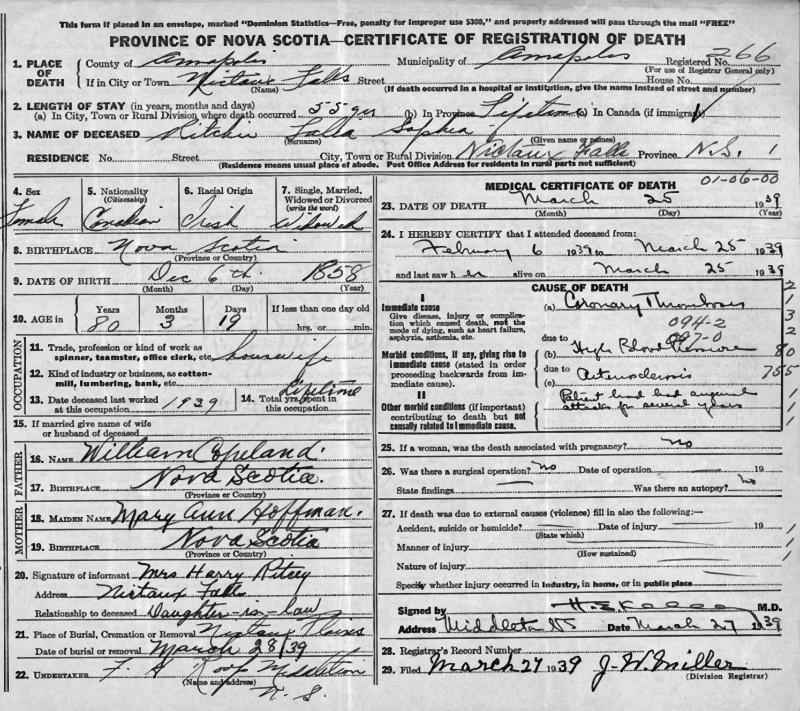 This form if placed in an envelope, marked "Dominion Statistics—Free, penalty for improper use $300," and properly addressed will pass through the mail "FREE"
PROVINCE OF NOVA SCOTIA—CERTIFICATE OF REGISTRATION OF DEATH
1. PLACE OF DEATH
County of Annapolis Municipality of Annapolis Registered No. 266
(For use of Registrar General only)
If in City or Town Nictaux Falls Street House No.
(Name) (If death occurred in a hospital or institution, give the name instead of street and number)
2. LENGTH OF STAY (in years, months and days)
(a) In City, Town or Rural Division where death occurred 55 yrs (b) In Province Lifetime (c) In Canada (if immigrant)
3. NAME OF DECEASED Sophia
(Surname) (Given name or names)
RESIDENCE No. Street City, Town or Rural Division Nictaux Falls Province N.S. 1
(Residence means usual place of abode. Post Office Address for residents in rural parts not sufficient)
4. Sex 5. Nationality 6. Racial Origin 7. Single, Married, Widowed or Divorced
(Citizenship) (write the word)
Female Canadian Irish Widowed
8. BIRTHPLACE Nova Scotia
(Province or Country)
9. DATE OF BIRTH Dec 6th 1858
(Month) (Day) (Year)
10. AGE in Years Months Days If less than one day old
80 3 19 hrs. or min.
OCCUPATION
11. Trade, profession or kind of work as spinner, teamster, office clerk, etc. housewife
12. Kind of industry or business, as cotton-mill, lumbering, bank, etc.
13. Date deceased last worked at this occupation 1939 14. Total yrs. spent in this occupation Lifetime
15. If married give name of wife or husband of deceased
FATHER
16. NAME William Copeland.
17. BIRTHPLACE Nova Scotia.
(Province or Country)
MOTHER
18. MAIDEN NAME Mary Ann Hoffman.
19. BIRTHPLACE Nova Scotia
(Province or Country)
20. Signature of informant Mrs Harry Ritcey
Address Nictaux Falls
Relationship to deceased Daughter-in-law
21. Place of Burial, Cremation or Removal Nictaux Plains
Date of burial or removal March 28/39
22. UNDERTAKER Roop Middleton
(Name and address)
N. S.
MEDICAL CERTIFICATE OF DEATH 01-06-00
23. DATE OF DEATH March 25 1939
(Month) (Day) (Year)
24. I HEREBY CERTIFY that I attended deceased from:
February 6 1939 to March 25 1939
and last saw h er alive on March 25 1939
CAUSE OF DEATH
I
Immediate cause
Give disease, injury or complication which caused death, not the mode of dying, such as heart failure, asphyxia, asthenia, etc.
(a) Coronary Thrombosis
094-2
due to
Morbid conditions, if any, giving rise to immediate cause (stated in order proceeding backwards from immediate cause).
(b) High Blood Pressure
due to
(c) Arteriosclerosis
II
Other morbid conditions (if important) contributing to death but not causally related to immediate cause.
Patient had had anginal
attacks for several years
25. If a woman, was the death associated with pregnancy? no
26. Was there a surgical operation? no Date of operation 19
State findings Was there an autopsy? no
27. If death was due to external causes (violence) fill in also the following:—
Accident, suicide or homicide? Date of injury 19
(State which)
Manner of injury
(How sustained)
Nature of injury
Specify whether injury occurred in industry, in home, or in public place
Signed by M.D.
Address Middleton NS Date March 27 1939
28. Registrar's Record Number
29. Filed March 27 1939 J. W. Miller
(Division Registrar)